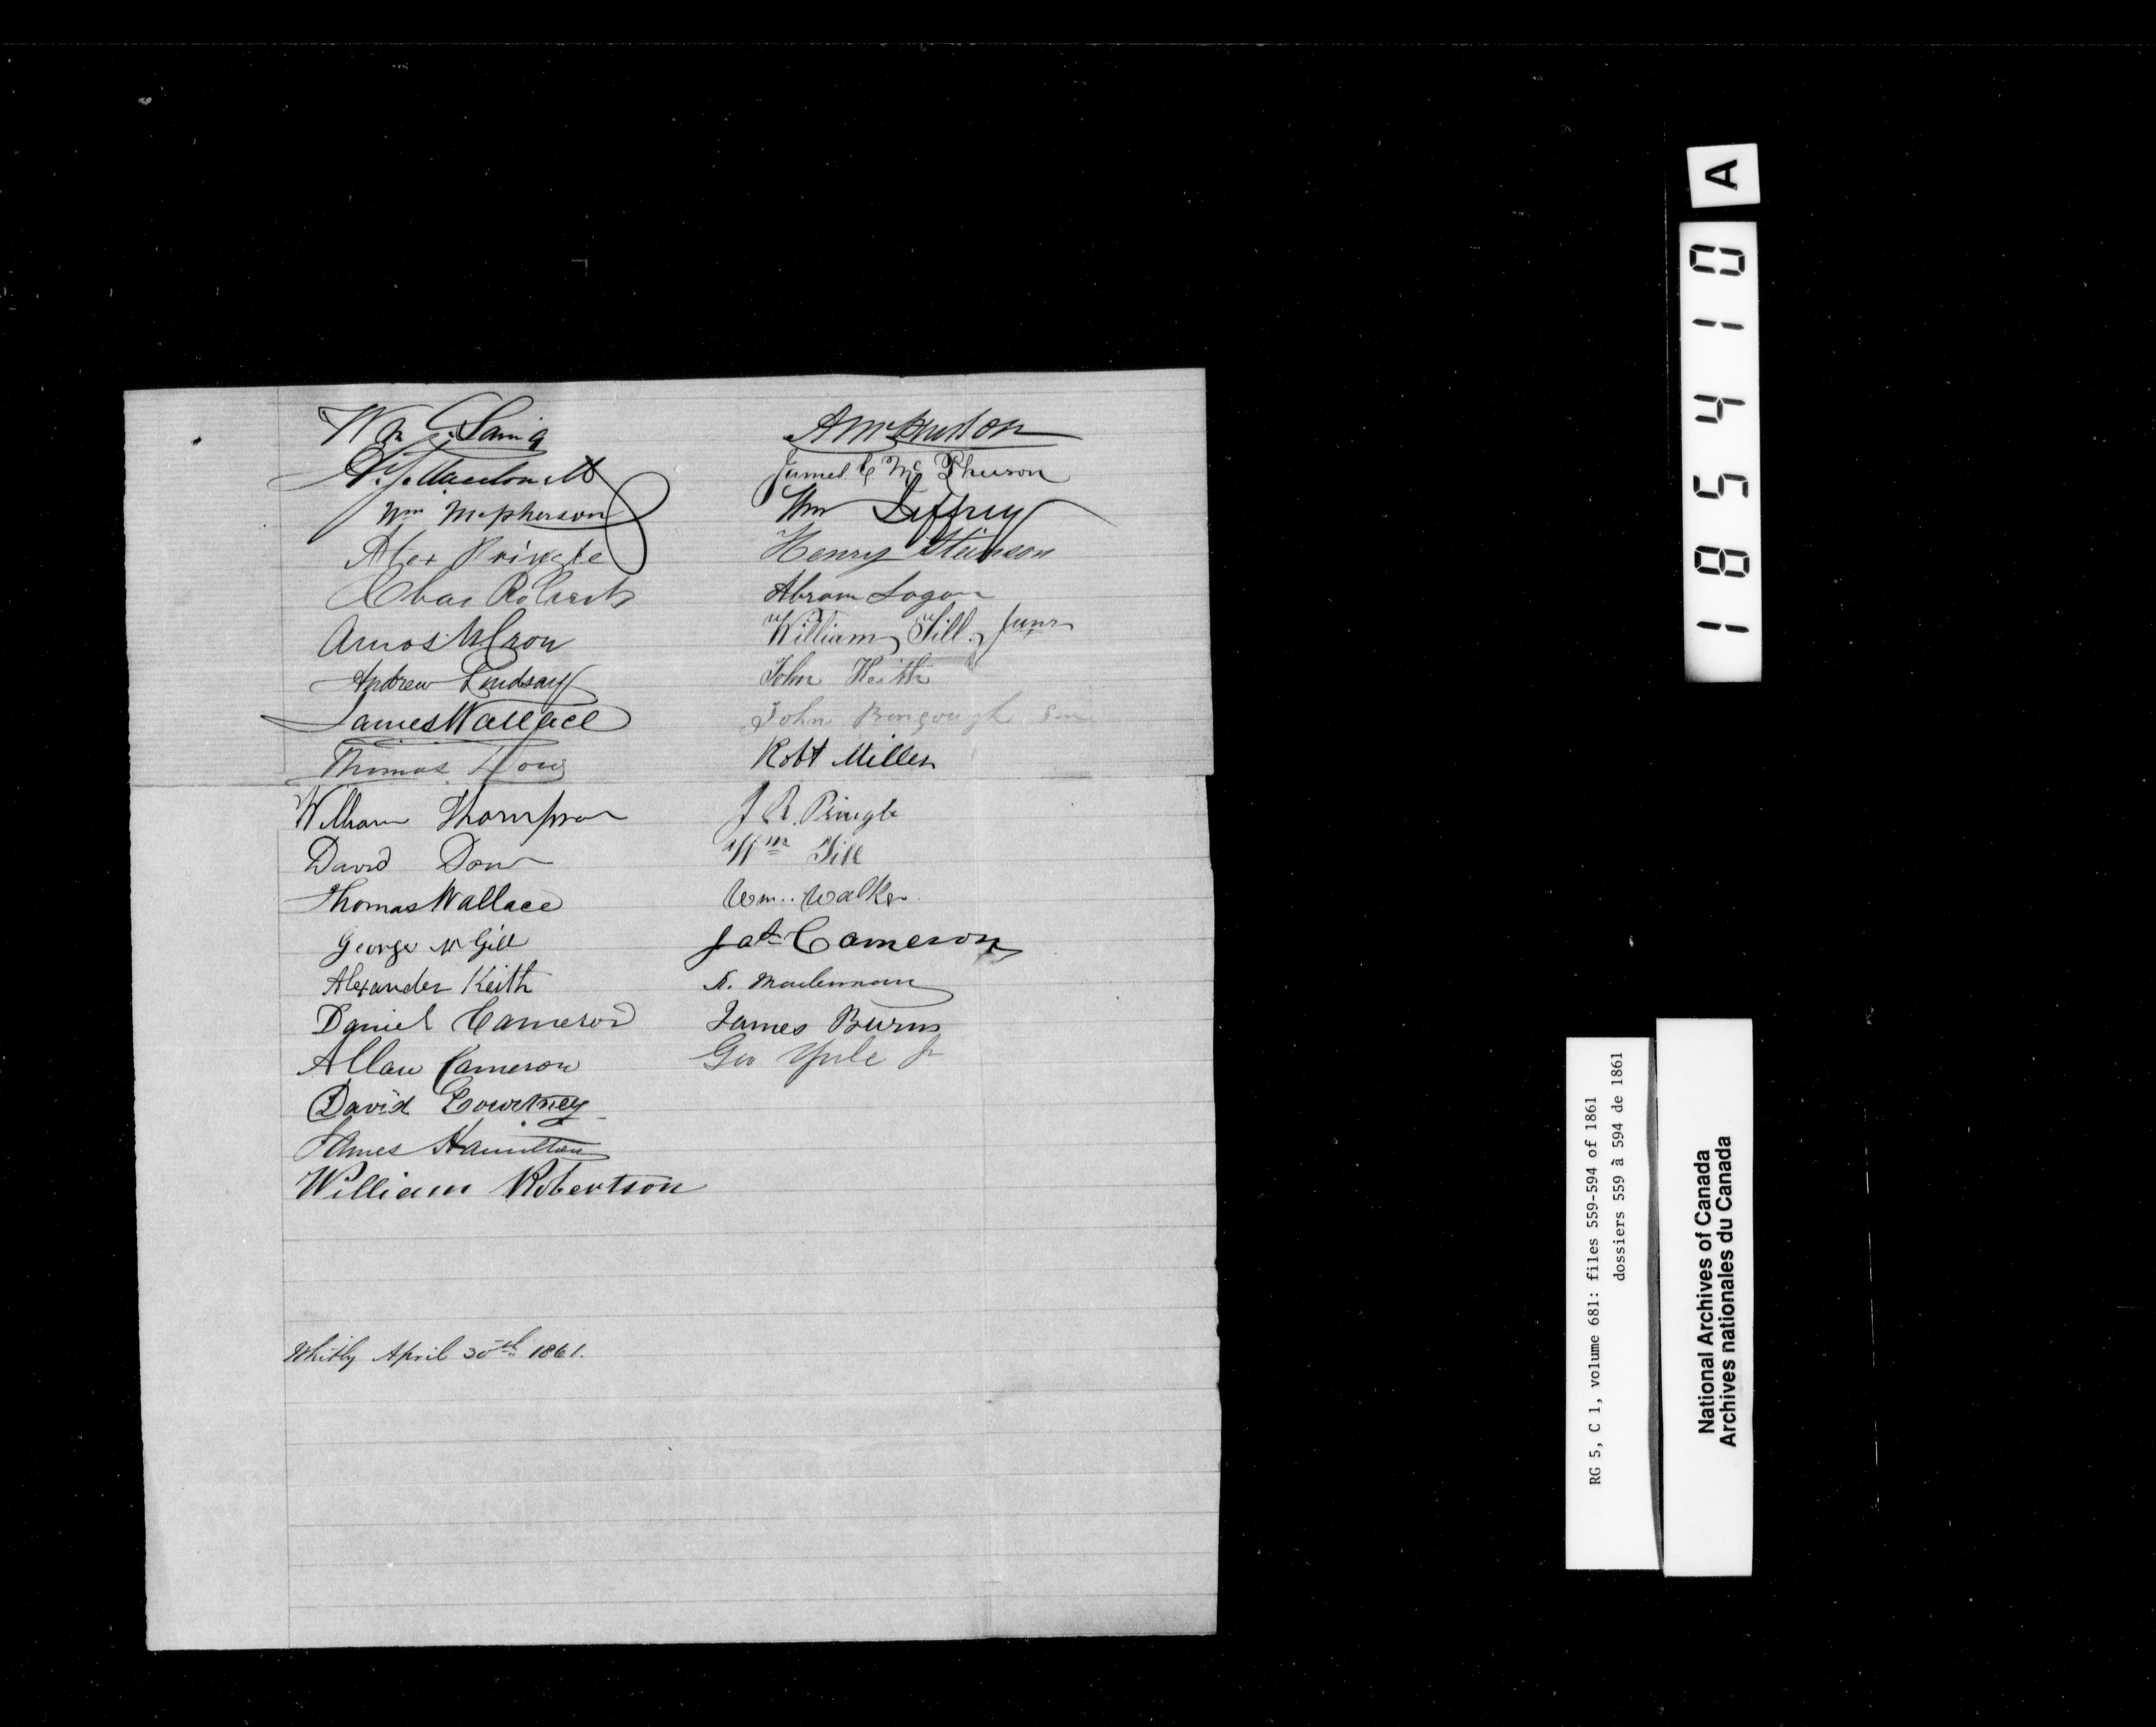 Wm Laing
Wm McPherson
Alex Pringle
Chas Roberts
Amos
Andrew Lindsay
James Wallace
Thomas
William Thompson
David Dow
Thomas Wallace
George McGill
Alexander Keith
Daniel Cameron
Allan Cameron
David Courtney
James Hamilton
William Robertson
James C McPherson
Wm Jeffrey
Henry Stinson
Abram Logan
William Till Junr
John Keith
John Bengough Sen
Robt Miller
J R Pringle
Wm Till
Wm.. Walker
Jas Cameron
James Burns
Geo Yule Jr
Whitby April 30th 1861.
185410
A
RG 5, C 1, volume 681: files 559-594 of 1861
dossiers 559 à 594 de 1861
National Archives of Canada
Archives nationales du Canada